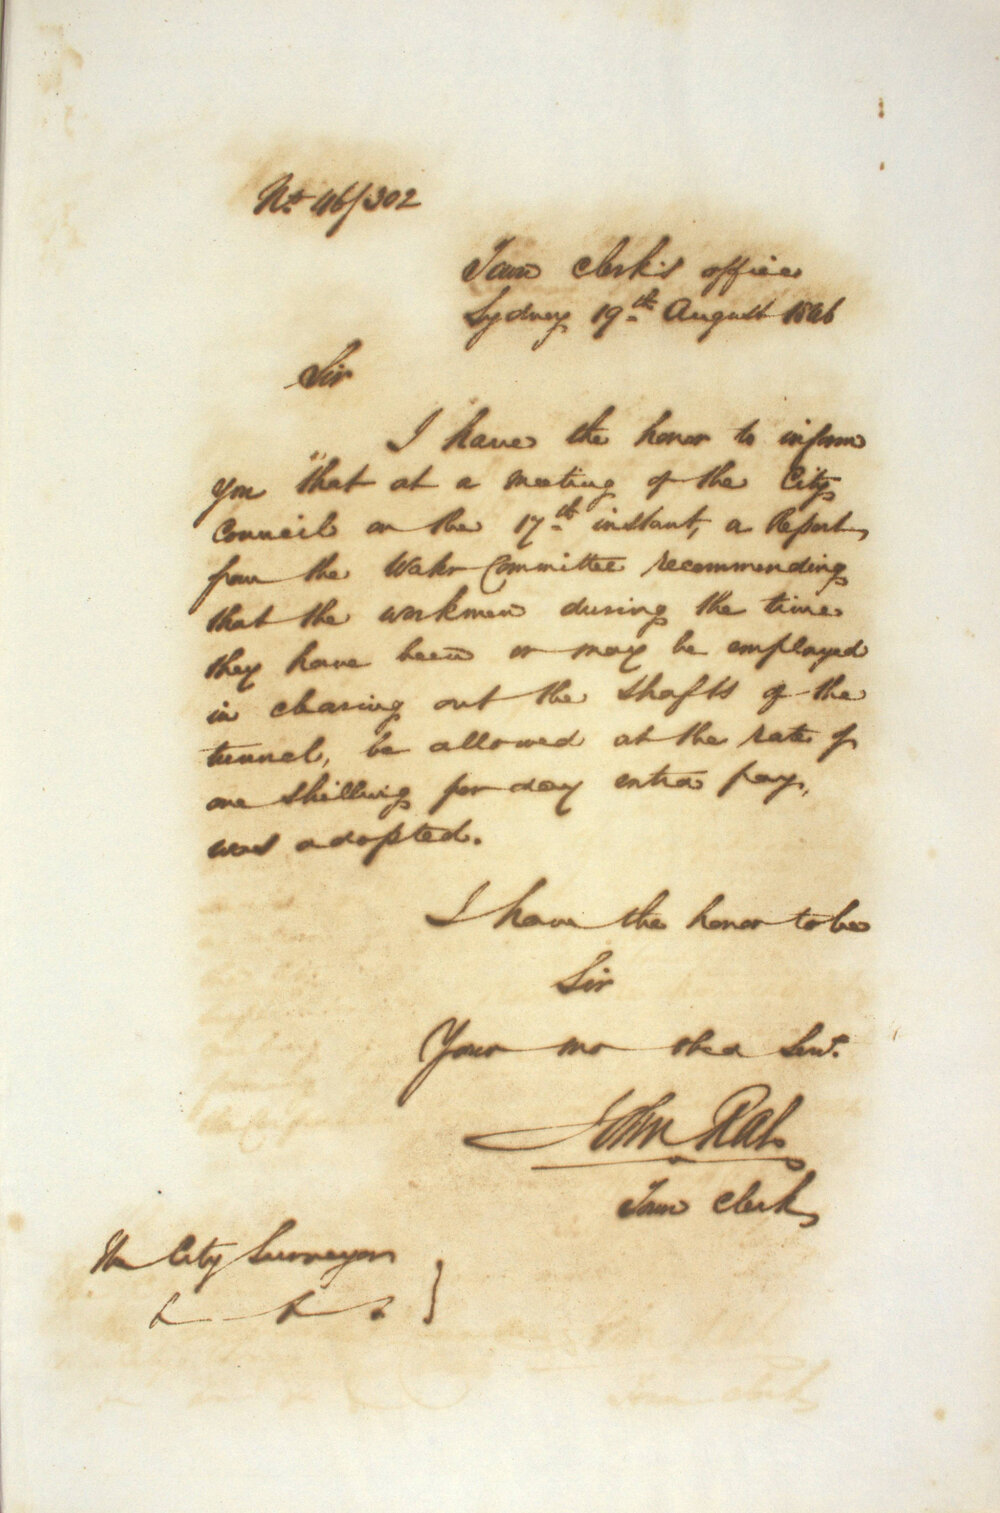 No. 46/302
Town Clerk's office
Sydney 19th August 1846
Sir
I have the honor to inform
you "that at a meeting of the City
Council on the 17th instant, a Report
from the Water Committee recommending
that the workmen during the time
they have been or may be employed
in clearing out the shafts of the
tunnel, be allowed at the rate of
one shilling per day extra pay,
was adopted.
I have the honor to be
Sir
Your mo obed Servt.
John Rae
Town Clerk
The City Surveyor